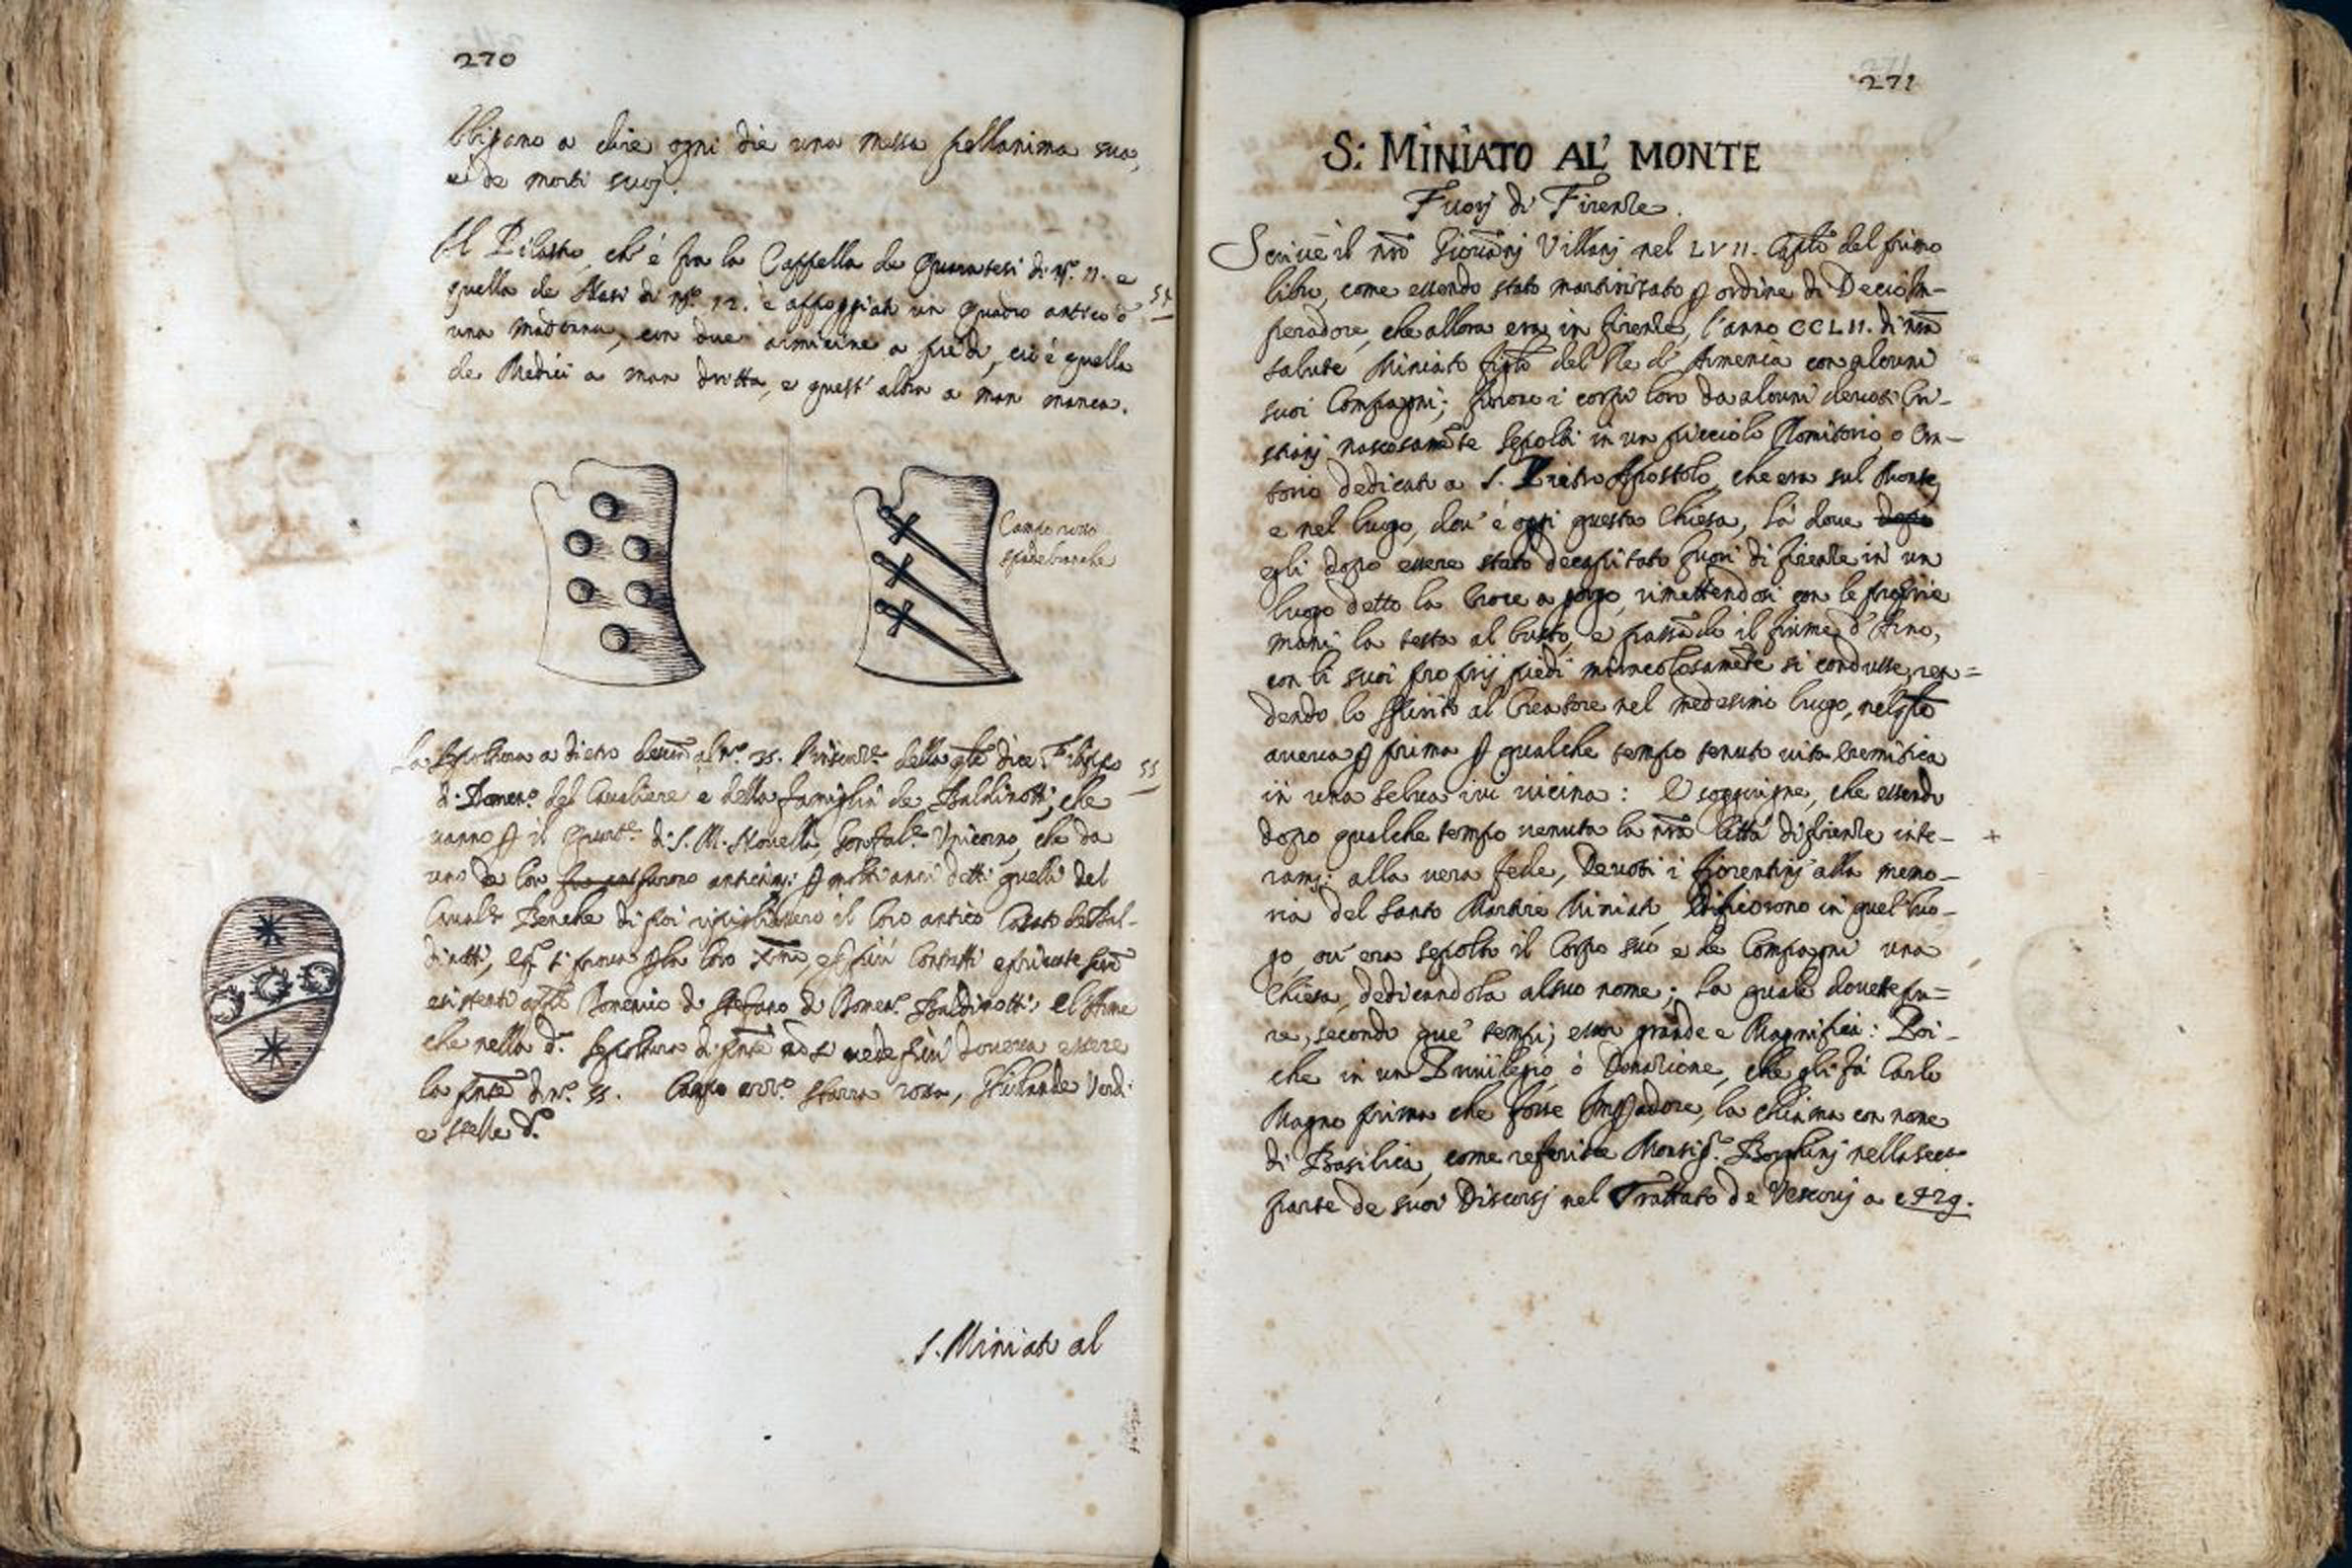 270
a dire ogni die una messa pellanima sua,
e de morti suoj.
Il Pilastro, ch' è fra la Cappella de Quaratesi di nº. 11. e
quella de Nasi di nº. 12. è appoggiato un quadro antico ò 54
una Madonna, con due armicine a piedi, cioè quella
de Medici a man dritta, e quest' altra a man manca.
Campo rosso
spade bianche
La Sepoltura a dietro al nº. 35. della dice Filippo 55
di Domen.º del Cavaliere e della famiglia de Baldinotti, che
vanno il di S. M. Novella, Unicorno, che da
uno da loro furono molti anni detti quelli del
Benche di poi il loro antico Casato de Bal-
dinotti, si prova loro Contratti e
esistenti Domenico di Stefano di Domen.º Baldinotti, e l'Arme
che nella d.ª Sepoltura si vede più doveva essere
la di nº. 55. Campo sbarra rossa, Ghirlande Verdi
e stelle d.º
S. Miniato al
271
S: MINIATO AL' MONTE
Fuorj di Firenze.
Scrive il nrō Giovānj Villanj nel LVII. Capitō del primo
libro, come essendo stato martirizato ꝑ ordine di Decio Im-
peradore, che allora era in firenze, l'anno CCLII. di nrā
salute Miniato figlō del Re d' Armenia con alcuni
suoi Compagni; furono i corpi loro da alcuni devoti Cri-
stianj nascosamēte sepolti in un picciolo Romitorio, o Ora-
torio dedicato a S. Pietro Apostolo, che era sul Monte,
e nel luogo, dov' è oggi questa Chiesa, là dove dopo
egli dopo essere stato decapitato fuori di firenze in un
luogo detto la Croce a gorgo, rimettendosi con le proprie
mani la testa al busto, e passādo il fiume d' Arno,
con li suoi proprij piedi miracolosamēte si condusse, ren=
dendo lo spirito al Creatore nel medesimo luogo, nel
aveva ꝑ prima ꝑ qualche tempo tenuto vita Eremitica
in una selva ivi vicina: E soggiugne, che essendo
dopo qualche tempo venuta la nrā Città di firenze inte- +
ramj: alla vera fede, Devoti i fiorentinj alla memo-
ria del Santo Martire Miniato, Edificorono in quel luo-
go, ov' era sepolto il Corpo suo e de Compagni una
Chiesa, dedicandola al suo nome; La quale dovette pu=
re, secondo que' tempi, esser grande e Magnifica: Poi-
che in un Privilegio, ò Donazione, che gli fà Carlo
Magno prima che fosse Impꝑadore, la chiama con nome
di Basilica, come referisce Monsig.r Borghinj nella
parte de suoi Discorsj nel Trattato de Vescovj a c 429.